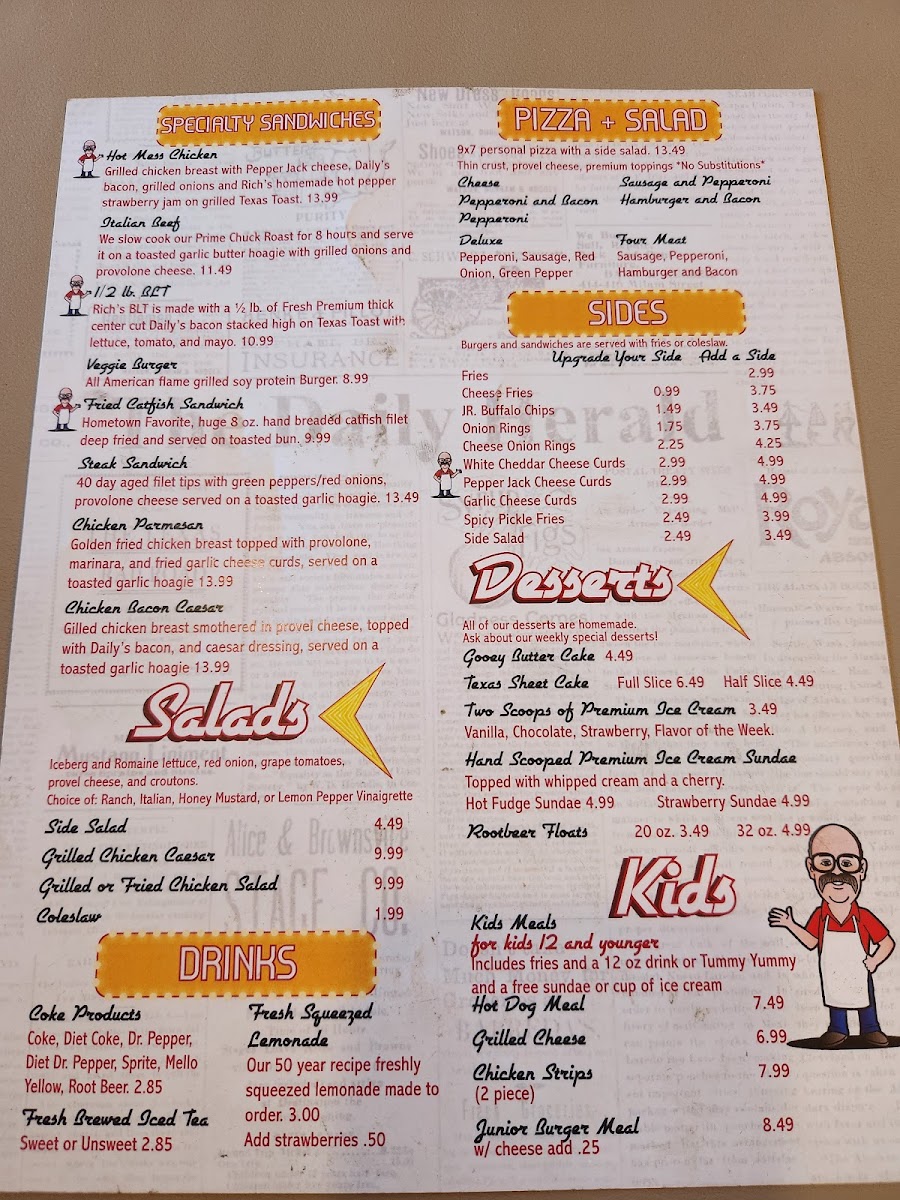 SPECIALTY SANDWICHES
Hot Mess Chicken
Grilled chicken breast with Pepper Jack cheese, Daily's
bacon, grilled onions and Rich's homemade hot pepper
strawberry jam on grilled Texas Toast. 13.99
Italian Beef
We slow cook our Prime Chuck Roast for 8 hours and serve
it on a toasted garlic butter hoagie with grilled onions and
provolone cheese. 11.49
1/2 lb. BLT
Rich's BLT is made with a ½ lb. of Fresh Premium thick
center cut Daily's bacon stacked high on Texas Toast with
lettuce, tomato, and mayo. 10.99
Veggie Burger
All American flame grilled soy protein Burger. 8.99
Fried Catfish Sandwich
Hometown Favorite, huge 8 oz. hand breaded catfish filet
deep fried and served on toasted bun. 9.99
Steak Sandwich
40 day aged filet tips with green peppers/red onions,
provolone cheese served on a toasted garlic hoagie. 13.49
Chicken Parmesan
Golden fried chicken breast topped with provolone,
marinara, and fried garlic cheese curds, served on a
toasted garlic hoagie 13.99
Chicken Bacon Caesar
Gilled chicken breast smothered in provel cheese, topped
with Daily's bacon, and caesar dressing, served on a
toasted garlic hoagie 13.99
Salads
Iceberg and Romaine lettuce, red onion, grape tomatoes,
provel cheese, and croutons.
Choice of: Ranch, Italian, Honey Mustard, or Lemon Pepper Vinaigrette
Side Salad 4.49
Grilled Chicken Caesar 9.99
Grilled or Fried Chicken Salad 9.99
Coleslaw 1.99
DRINKS
Coke Products
Coke, Diet Coke, Dr. Pepper,
Diet Dr. Pepper, Sprite, Mello
Yellow, Root Beer. 2.85
Fresh Brewed Iced Tea
Sweet or Unsweet 2.85
Fresh Squeezed
Lemonade
Our 50 year recipe freshly
squeezed lemonade made to
order. 3.00
Add strawberries .50
PIZZA + SALAD
9x7 personal pizza with a side salad. 13.49
Thin crust, provel cheese, premium toppings *No Substitutions*
Cheese Sausage and Pepperoni
Pepperoni and Bacon Hamburger and Bacon
Pepperoni
Deluxe Four Meat
Pepperoni, Sausage, Red Sausage, Pepperoni,
Onion, Green Pepper Hamburger and Bacon
SIDES
Burgers and sandwiches are served with fries or coleslaw.
Upgrade Your Side Add a Side
Fries 2.99
Cheese Fries 0.99 3.75
JR. Buffalo Chips 1.49 3.49
Onion Rings 1.75 3.75
Cheese Onion Rings 2.25 4.25
White Cheddar Cheese Curds 2.99 4.99
Pepper Jack Cheese Curds 2.99 4.99
Garlic Cheese Curds 2.99 4.99
Spicy Pickle Fries 2.49 3.99
Side Salad 2.49 3.49
Desserts
All of our desserts are homemade.
Ask about our weekly special desserts!
Gooey Butter Cake 4.49
Texas Sheet Cake Full Slice 6.49 Half Slice 4.49
Two Scoops of Premium Ice Cream 3.49
Vanilla, Chocolate, Strawberry, Flavor of the Week.
Hand Scooped Premium Ice Cream Sundae
Topped with whipped cream and a cherry.
Hot Fudge Sundae 4.99 Strawberry Sundae 4.99
Rootbeer Floats 20 oz. 3.49 32 oz. 4.99
Kids
Kids Meals
for kids 12 and younger
Includes fries and a 12 oz drink or Tummy Yummy
and a free sundae or cup of ice cream
Hot Dog Meal 7.49
Grilled Cheese 6.99
Chicken Strips 7.99
(2 piece)
Junior Burger Meal 8.49
w/ cheese add .25